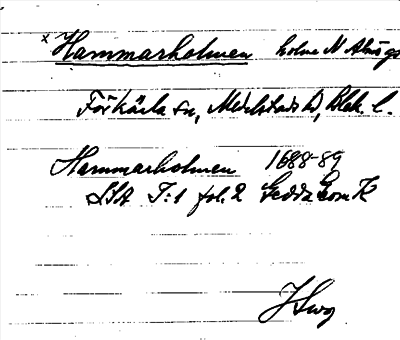 x Hammarholmen holme N Almö gs
Förkärla sn, Medelstads hd, Blek. l.
Hammarholmen 1688-89
LSA T:1 fol. 2 Gedda Eom K